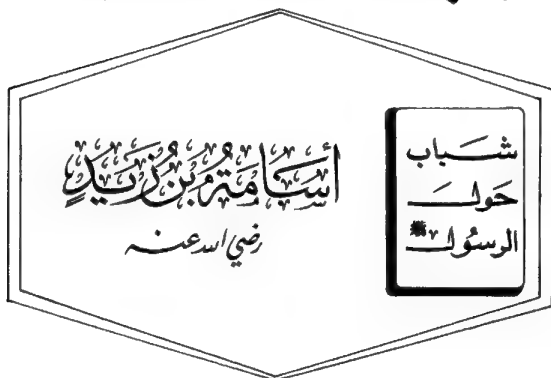 شباب
حول
الرسول ﷺ
أسامة بن زيد
رضي الله عنه